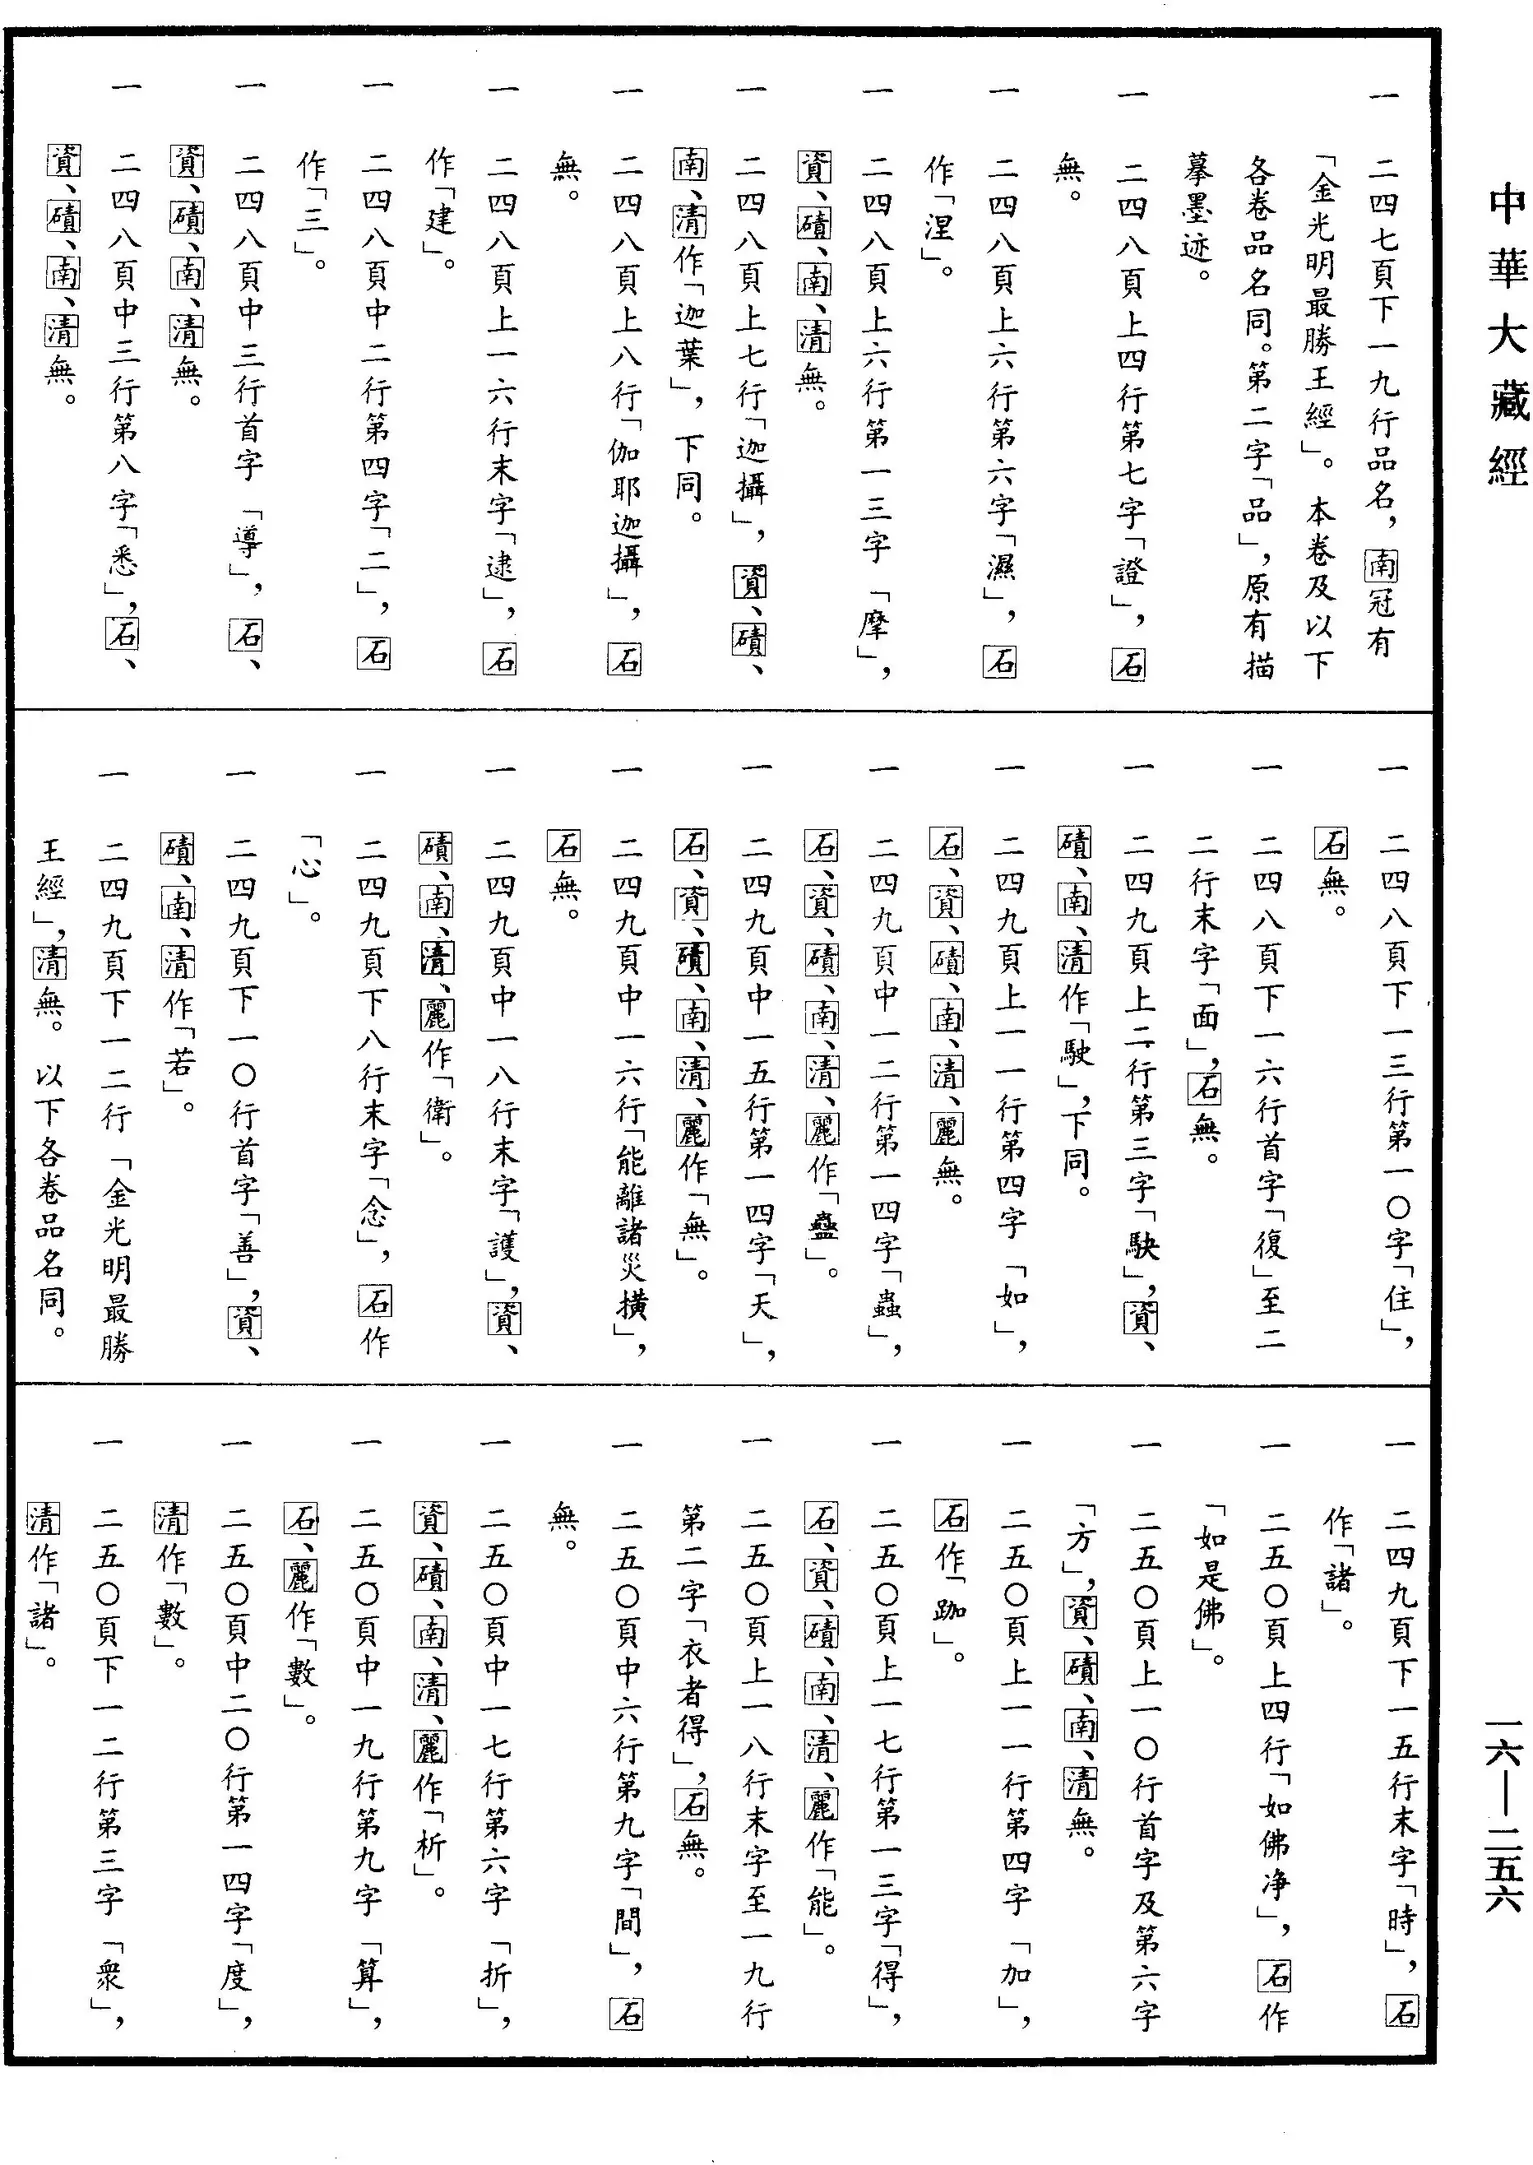 中華大藏經
一　二四七頁下一九行品名，南冠有
「金光明最勝王經」。本卷及以下
各卷品名同。第二字「品」，原有描
摹墨迹。
一　二四八頁上四行第七字「證」，石
無。
一　二四八頁上六行第六字「濕」，石
作「涅」。
一　二四八頁上六行第一三字「摩」，
資、磧、南、清無。
一　二四八頁上七行「迦攝」，資、磧、
南、清作「迦葉」，下同。
一　二四八頁上八行「伽耶迦攝」，石
無。
一　二四八頁上一六行末字「逮」，石
作「建」。
一　二四八頁中二行第四字「二」，石
作「三」。
一　二四八頁中三行首字「導」，石、
資、磧、南、清無。
一　二四八頁中三行第八字「悉」，石、
資、磧、南、清無。
一　二四八頁下一三行第一〇字「住」，
石無。
一　二四八頁下一六行首字「復」至二
二行末字「面」，石無。
一　二四九頁上二行第三字「駃」，資、
磧、南、清作「駛」，下同。
一　二四九頁上一一行第四字「如」，
石、資、磧、南、清、麗無。
一　二四九頁中一二行第一四字「蟲」，
石、資、磧、南、清、麗作「蠱」。
一　二四九頁中一五行第一四字「天」，
石、資、磧、南、清、麗作「無」。
一　二四九頁中一六行「能離諸災橫」，
石無。
一　二四九頁中一八行末字「護」，資、
磧、南、清、麗作「衛」。
一　二四九頁下八行末字「念」，石作
「心」。
一　二四九頁下一〇行首字「善」，資、
磧、南、清作「若」。
一　二四九頁下一二行「金光明最勝
王經」，清無。以下各卷品名同。
一　二四九頁下一五行末字「時」，石
作「諸」。
一　二五〇頁上四行「如佛净」，石作
「如是佛」。
一　二五〇頁上一〇行首字及第六字
「方」，資、磧、南、清無。
一　二五〇頁上一一行第四字「加」，
石作「跏」。
一　二五〇頁上一七行第一三字「得」，
石、資、磧、南、清、麗作「能」。
一　二五〇頁上一八行末字至一九行
第二字「衣者得」，石無。
一　二五〇頁中六行第九字「間」，石
無。
一　二五〇頁中一七行第六字「折」，
資、磧、南、清、麗作「析」。
一　二五〇頁中一九行第九字「算」，
石、麗作「數」。
一　二五〇頁中二〇行第一四字「度」，
清作「數」。
一　二五〇頁下一二行第三字「衆」，
清作「諸」。
一六—二五六